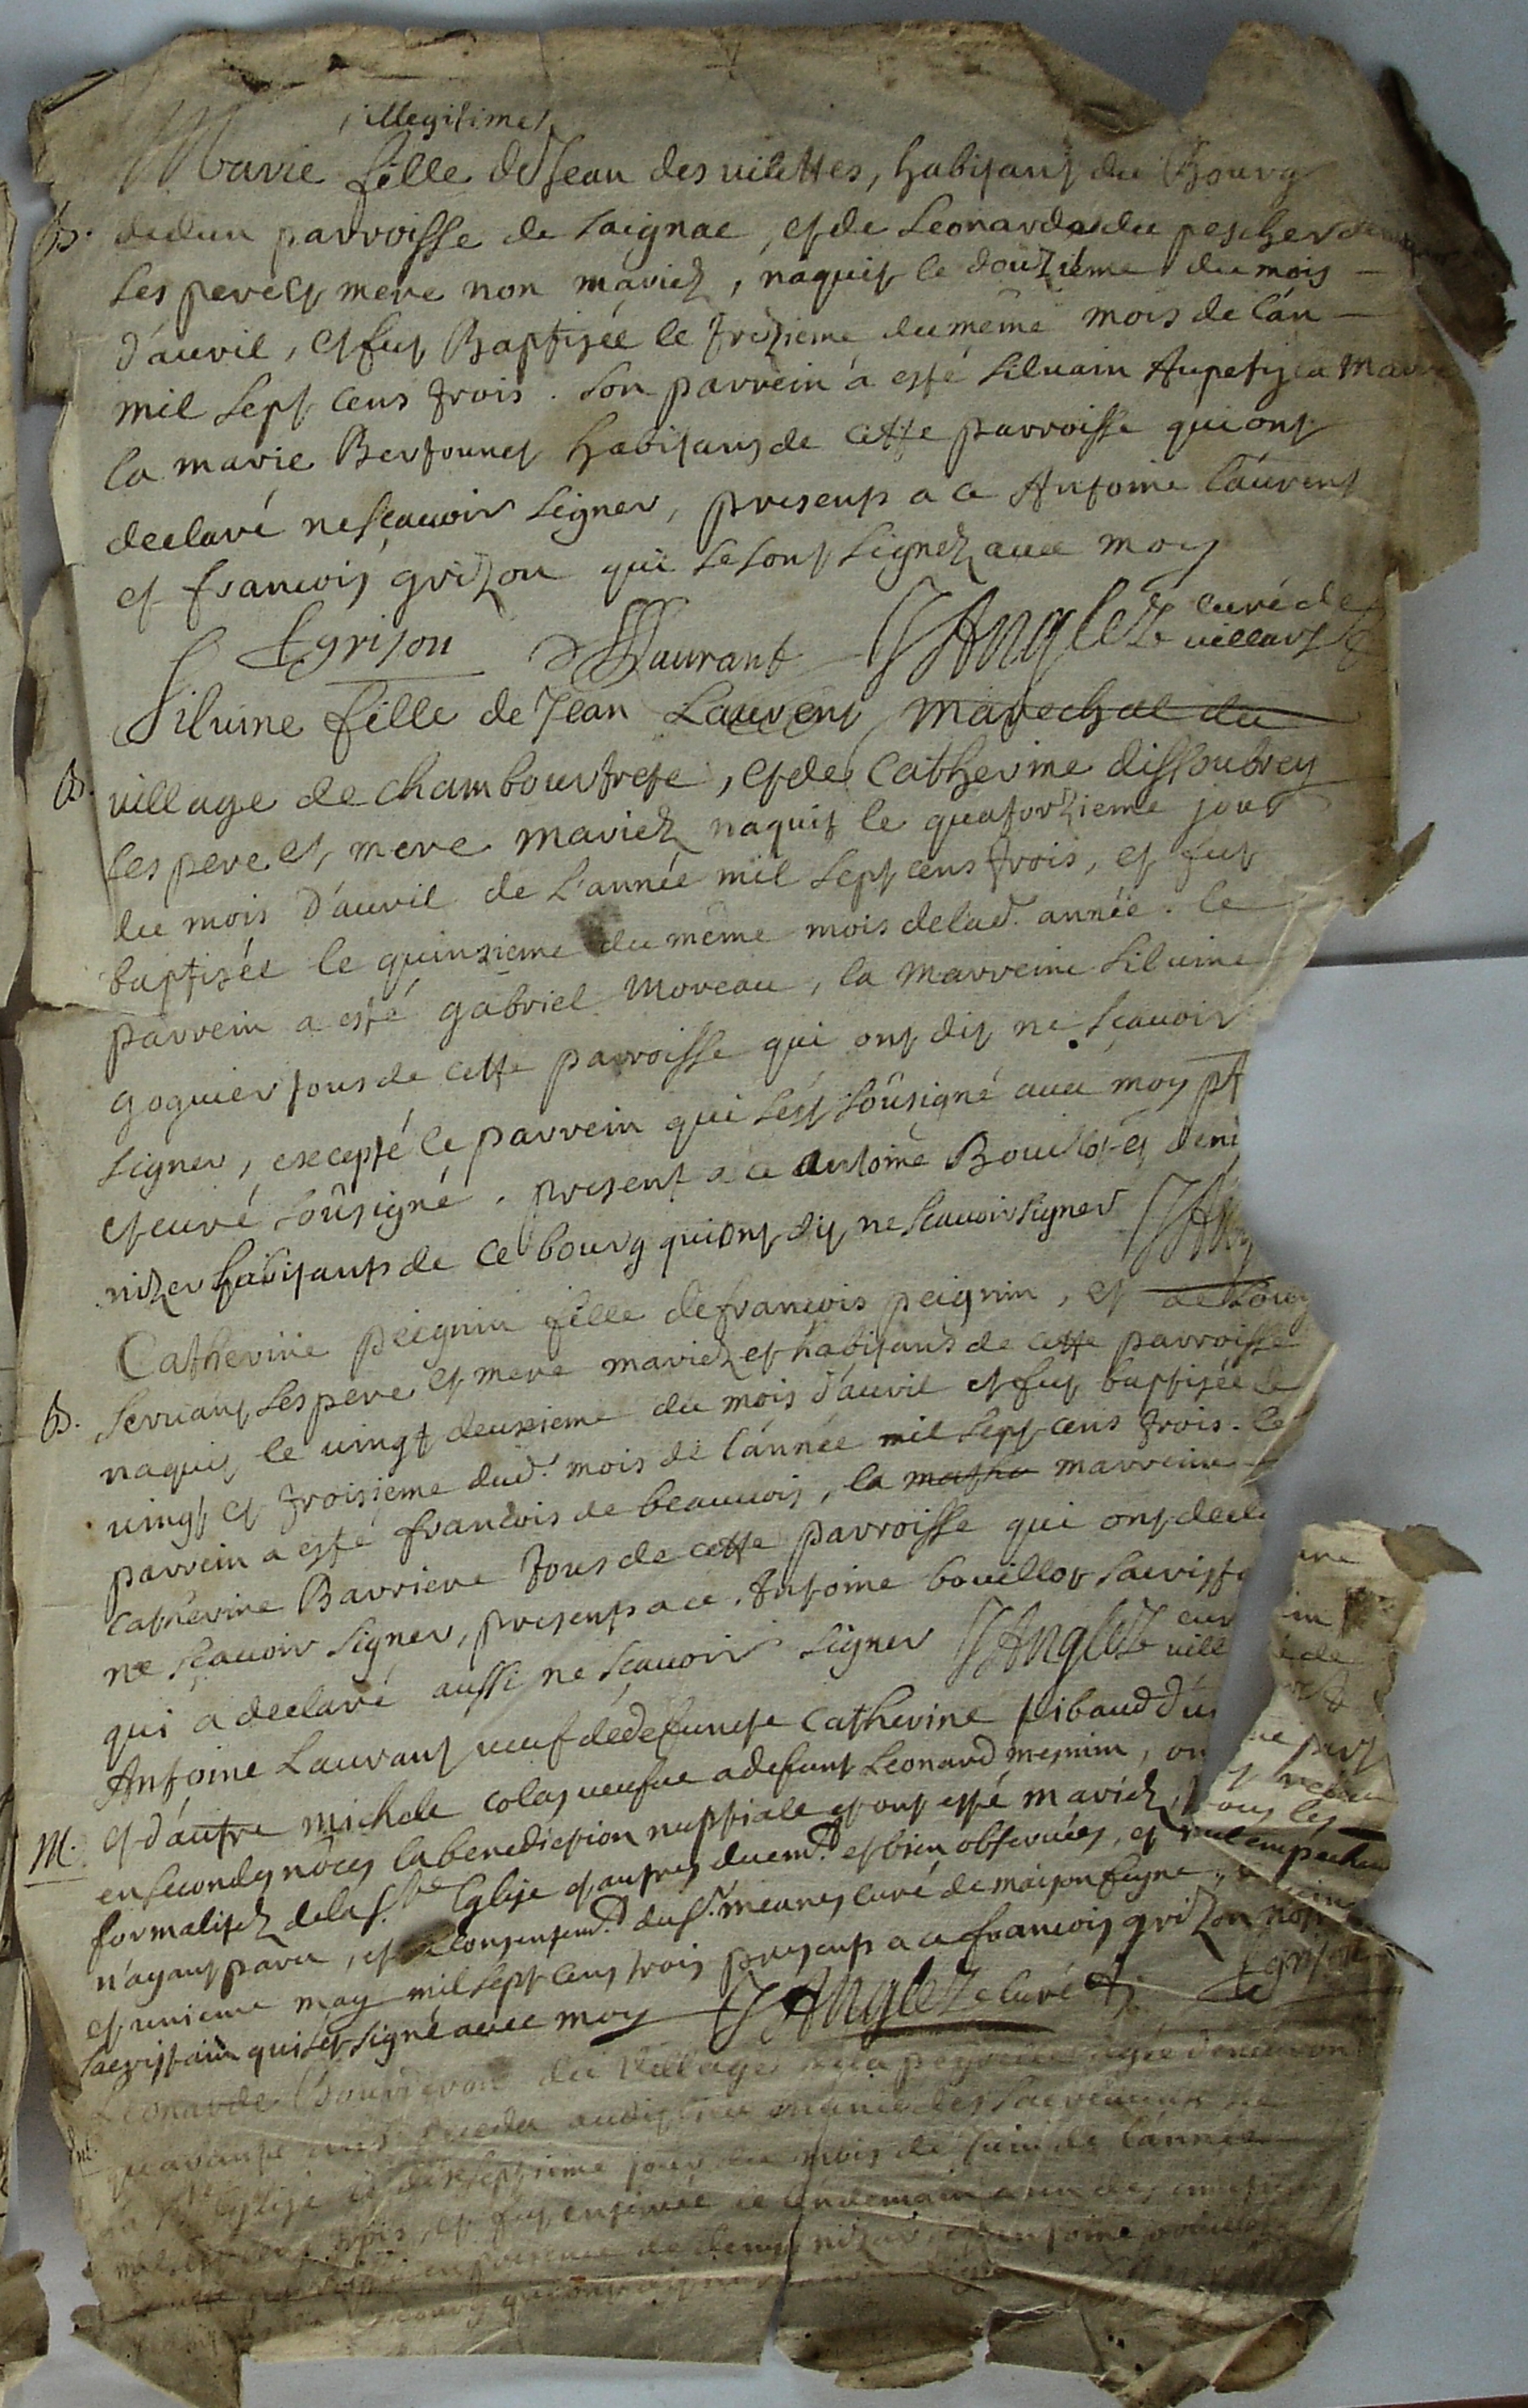 illegitime
Marie fille de Jean des vilettes, habitant du Bourg
B. dedun parroisse de saignac, et de Leonarde du pescher
ses pere et mere non mariez, naquit le douzième du mois
d'auril, et fut Baptizée le trezieme du même mois de l'an
mil sept cens trois. son parrein a esté siluain Aupetit la marre
la marie Bertounet habitans de cette parroisse qui ont
declaré ne sçauoir signer, presents a ce Antoine laurent
et françois grizon qui se sont signez auec moy
fgrison Laurant JAnglez curé de
villars
Siluine fille de Jean Laurent, marechal du
B. village de chambourtrese, et de Catherine dissoubrey
ses pere et mere mariez naquit le quatorzieme jour
du mois d'auril de l'année mil sept cens trois, et fut
baptizée le quinzieme du même mois de lad. année. le
parrein a esté gabriel moreau, la marreine siluine
goguier tous de cette parroisse qui ont dit ne sçauoir
signer, excepté le parrein qui s'est soûsigné auec moy pt
et curé soûsigné. present a ce antoine Bouillot et deni
nizer habitants de ce bourg qui ont dit ne scauoir signer JAng
Catherine peignin fille de françois peignin, et de
B. seruant ses pere et mere mariez et habitans de cette parroisse
naquit le uingt deuxieme du mois d'auril et fut baptizée le
uingt et troisieme dud. mois de l'année mil sept cens trois. le
parrein a esté françois de beauuois, la marreine
catherine Barriere tous de cette parroisse qui ont decla
ne sçauoir signer, presents a ce Antoine bouillot sacrista
qui a declaré aussi ne sçauoir signer JAnglez cur
vill
Antoine Laurant ueuf de defuncte Catherine pibaud d'u
M. et d'autre michele colas ueufue a defunt Leonard mesnin, on
en secondes nôces la benediction nuptiale et ont esté mariez,
formalitez de la ste Eglise et autres duemt. et bien obseruées, et nul empechem
n'ayant paru, et le consentemt. du sr. meaunes curé de maisonfeyne,
et unieme may mil sept cens trois presents a ce françois grizon
sacristain qui s'est signé auec moy JAnglez curé fgrison
Leonarde du Village agée d'enuiron
quarante ans deceda audit lieu munie des sacrements de
la ste Eglise le dixseptieme jour du mois de juin de l'année
mil sept cens trois, et fut enterrée le lendemain
en presence de denis nizer, et antoine bouillot